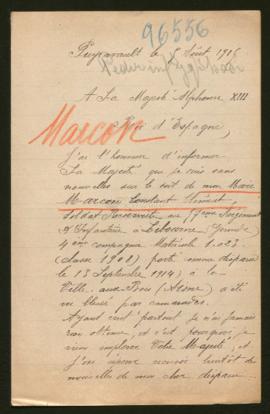 96556
le 5 Août 1915
A Sa Majesté Alphonse XIII
Marcon
Roi d'Espagne,
J'ai l'honneur d'informer
Sa Majesté que je suis sans
nouvelles sur le sort de mon Mari
Marcon Constant
Soldat Réserviste au Régiment
d'Infanterie à Libourne (Gironde)
4ème compagnie Matricule 1.023
(classe 1901) porté comme disparu
le 13 Septembre 1914 à la
Ville-aux-Bois (Aisne) a été
vu blessé par camarades.
Ayant écrit partout je n'ai jamais
rien obtenu, et c'est pourquoi je
viens implorer Votre Majesté, et
j'ose espérer recevoir bientôt de
nouvelles de mon cher disparu